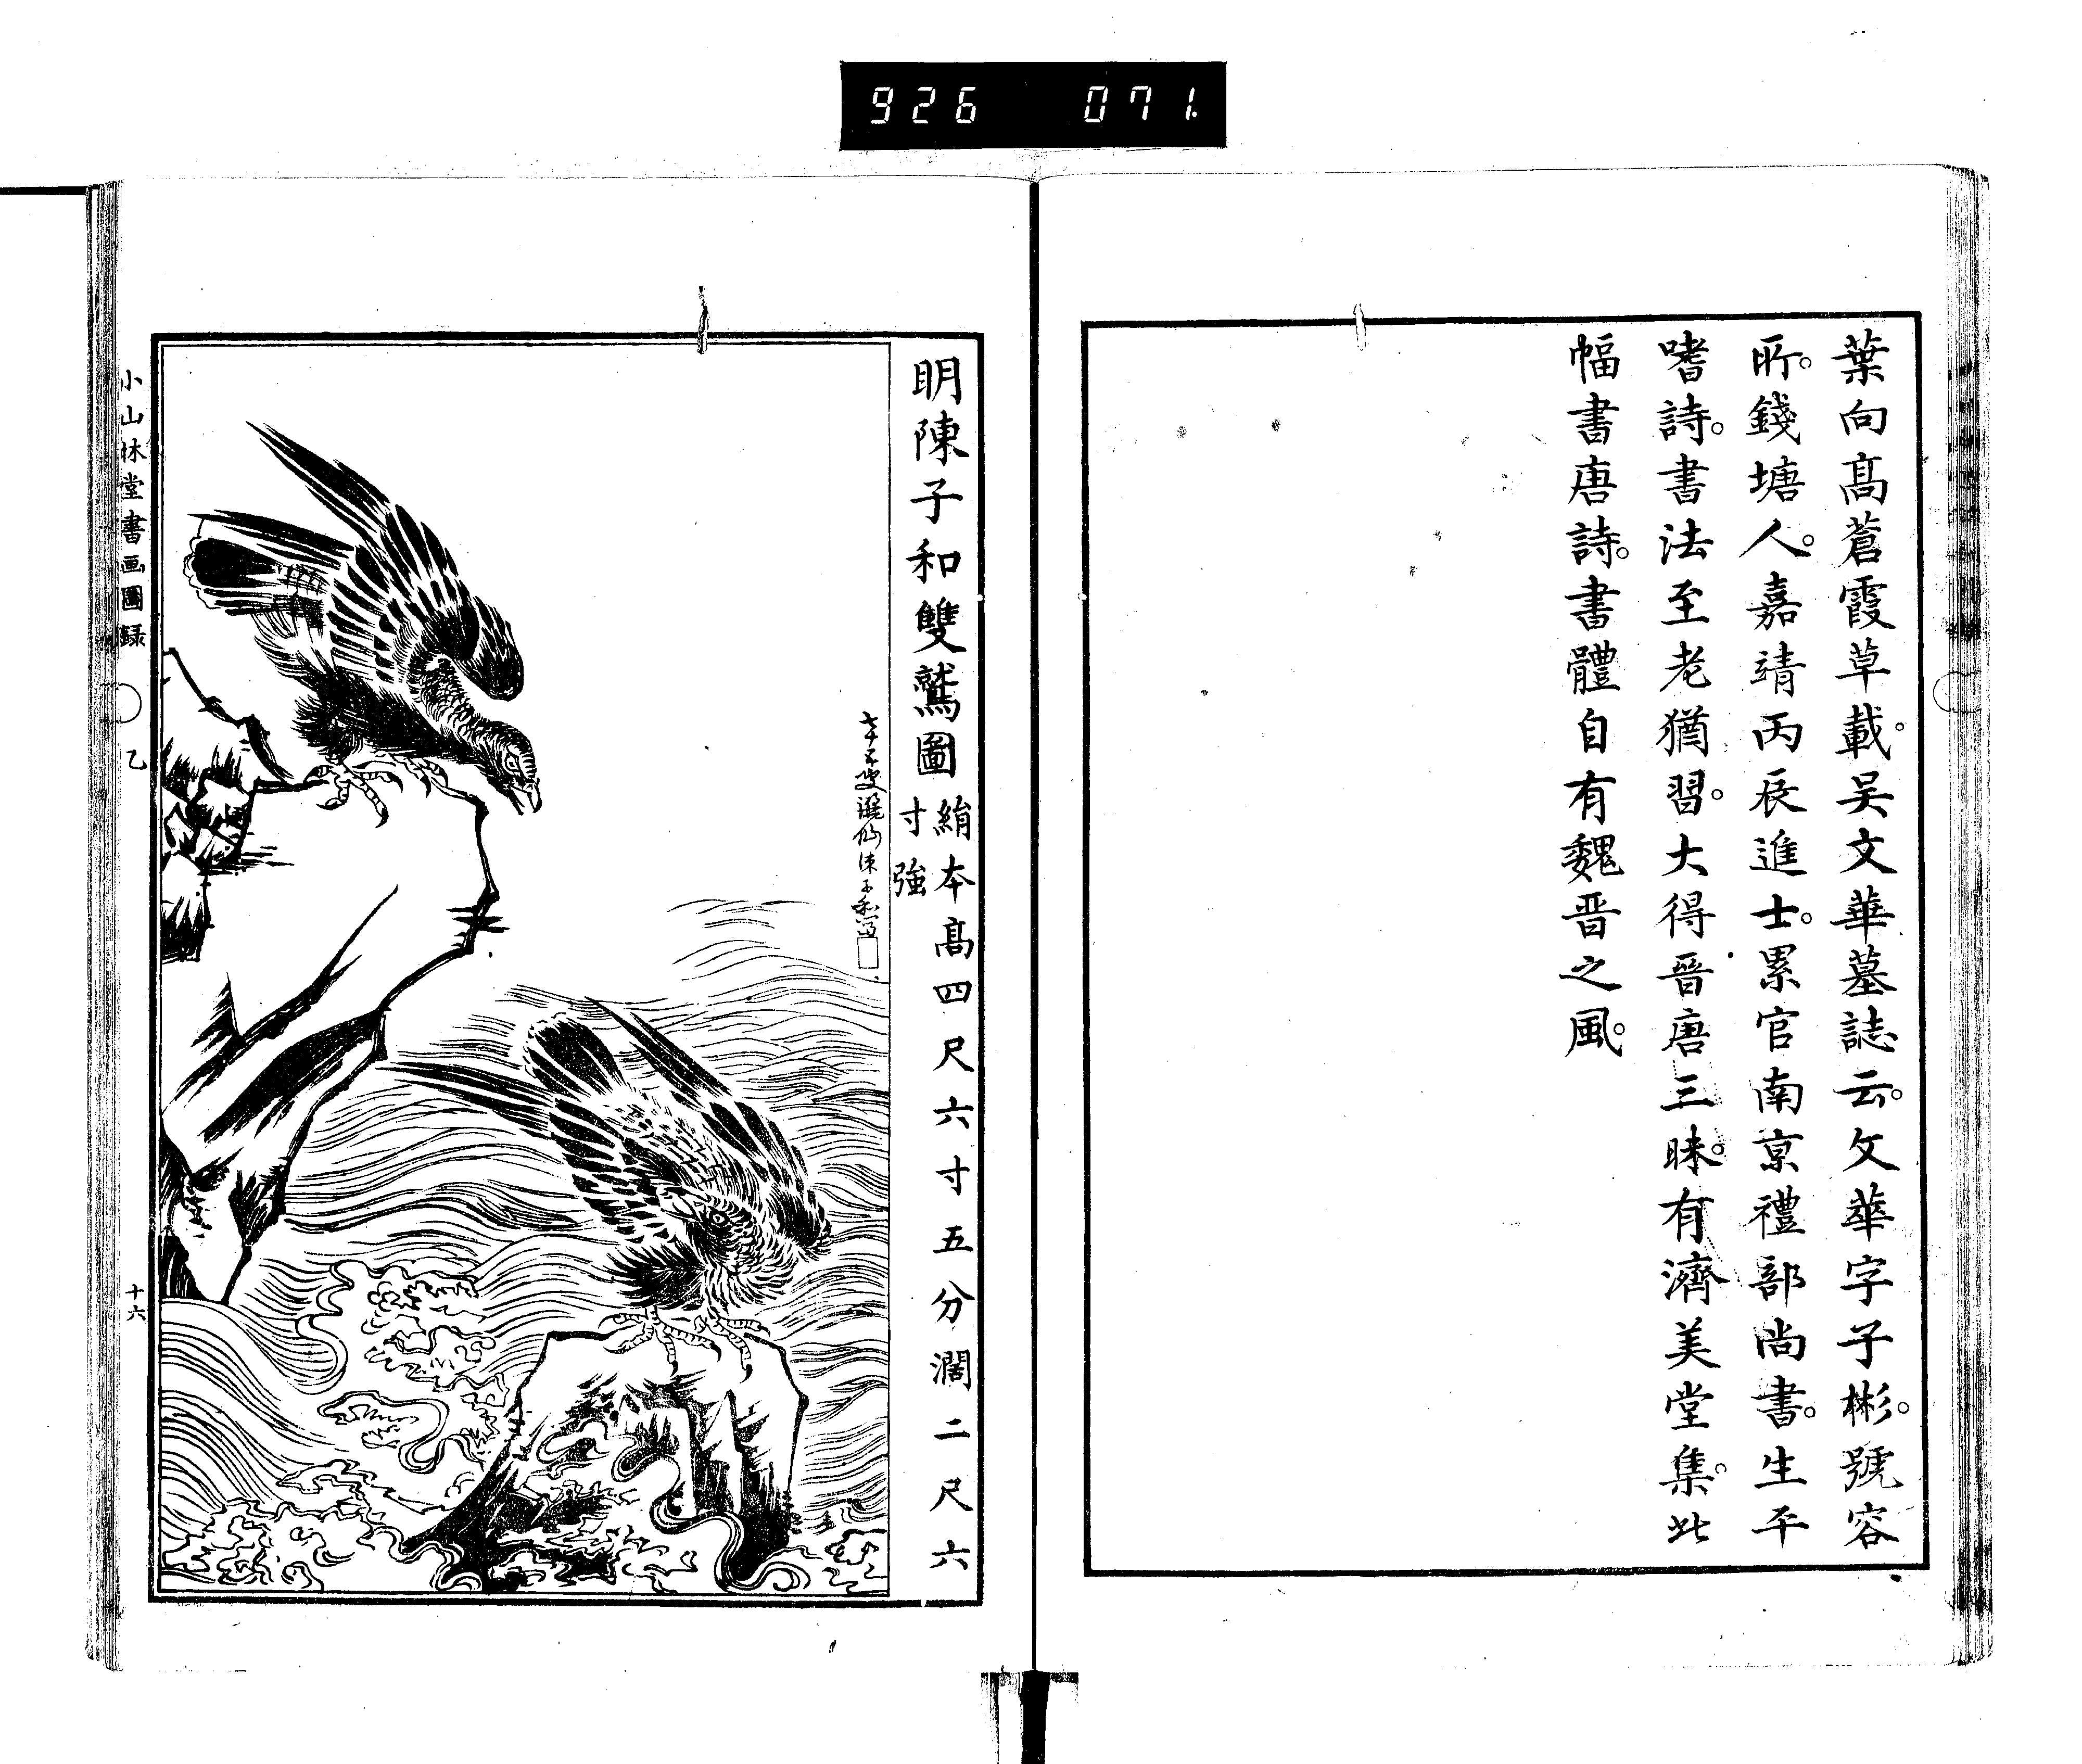 926 071.
葉向髙蒼霞草載。吴文華墓誌云。文華字子彬。號容
所。錢塘人。嘉靖丙辰進士。累官南京禮部尚書。生平
嗜詩。書法至老猶習。大得晉唐三昧。有濟美堂集。此
幅書唐詩。書體自有魏晋之風。
明陳子和雙鷲圖
絹本髙四尺六寸五分濶二尺六
寸強
七十五叟 陳子和寫
小山林堂書画圖録
乙
十六